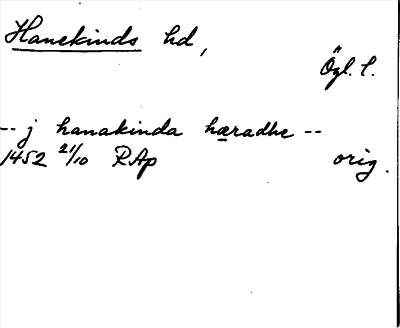 Hanekinds hd,
Ögl. l.
-- j hanakinda hæradhe --
1452 21/10 RAp orig.